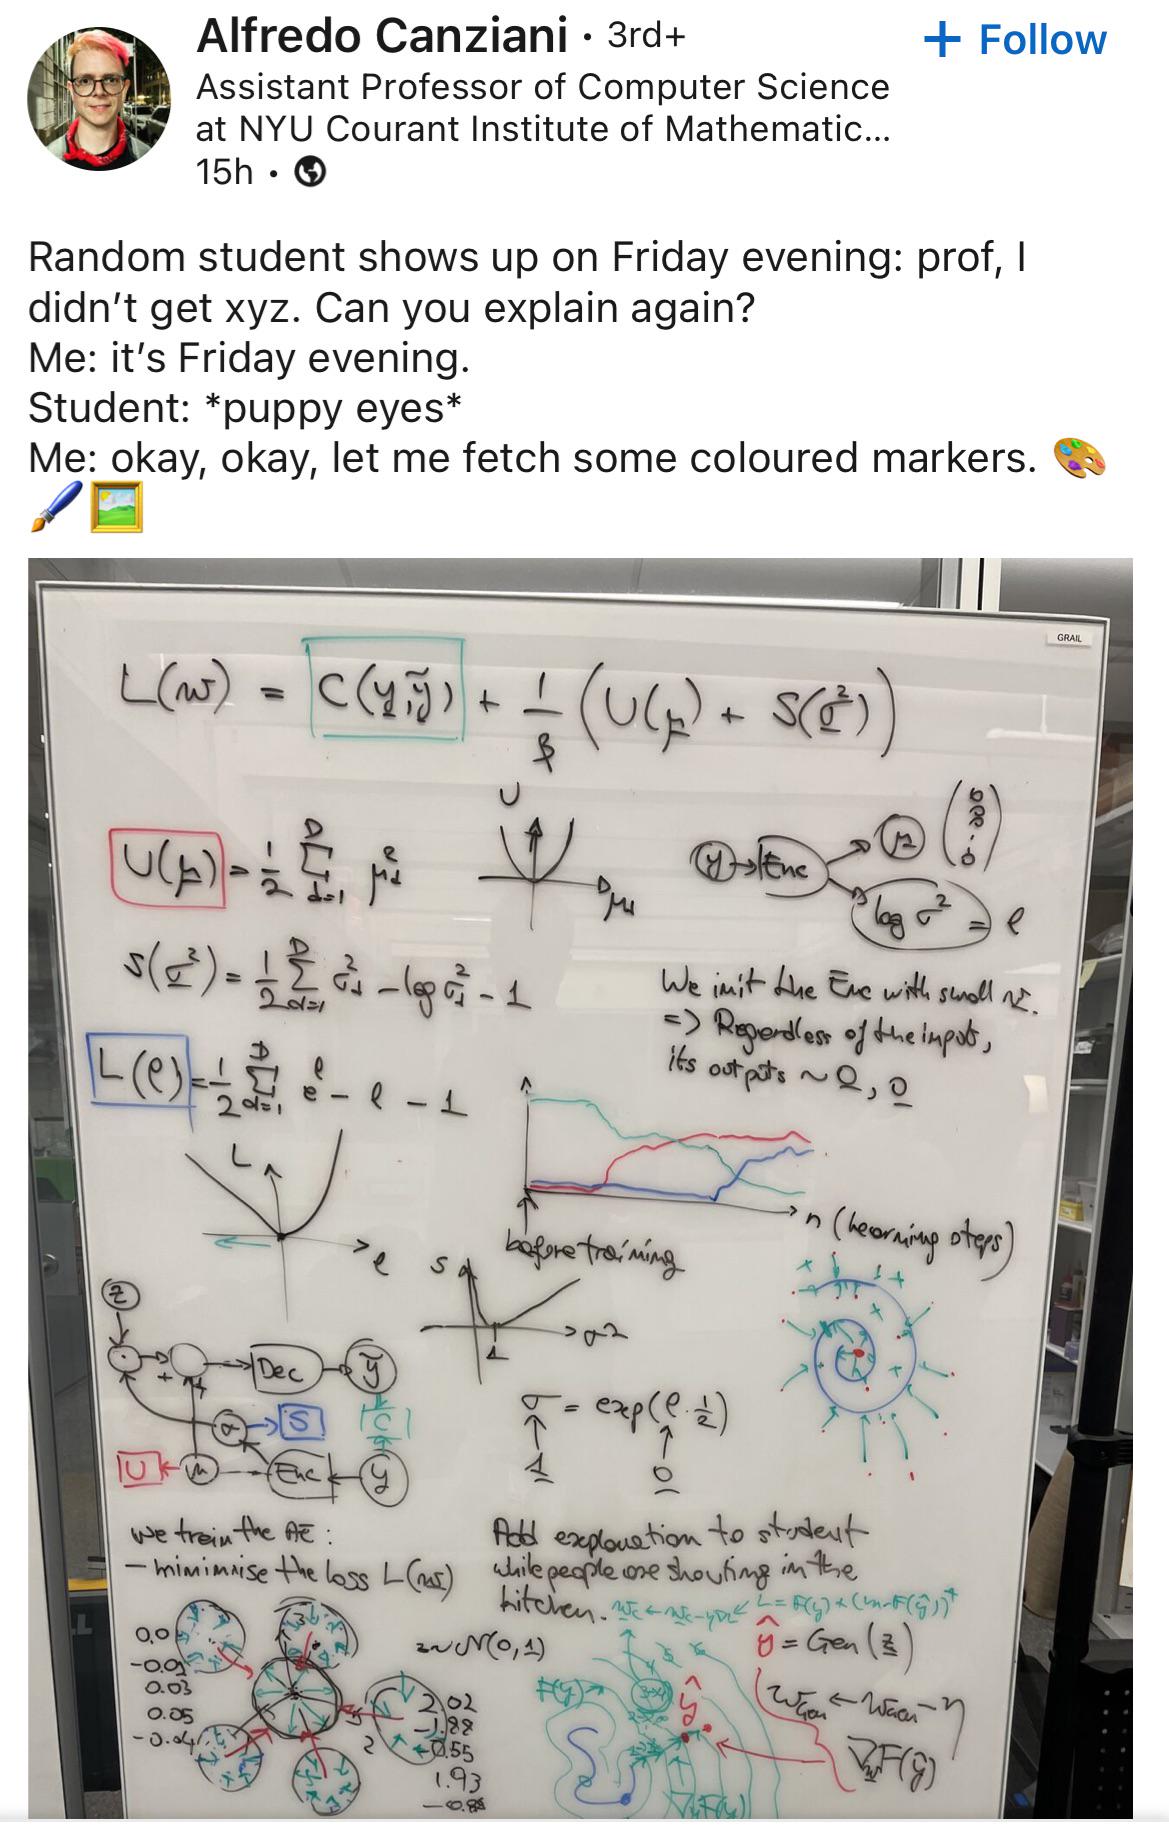 Alfredo Canziani · 3rd+
+ Follow
Assistant Professor of Computer Science
at NYU Courant Institute of Mathematic...
15h ·
Random student shows up on Friday evening: prof, I
didn't get xyz. Can you explain again?
Me: it's Friday evening.
Student: *puppy eyes*
Me: okay, okay, let me fetch some coloured markers. 🎨
🖌️🖼️
GRAIL
L(w) = C(y,ỹ) + 1/β (U(μ) + S(σ²))
U
U(μ) = 1/2 Σ_{d=1}^{D} μ_d²
μ_d
y → Enc
μ
log σ² = ℓ
S(σ²) = 1/2 Σ_{d=1}^{D} σ_d² - log σ_d² - 1
We init the Enc with small w.
=> Regardless of the input,
its outputs ~ 0, 0
L(ℓ) = 1/2 Σ_{d=1}^{D} e^ℓ - ℓ - 1
L
ℓ
n (learning steps)
before training
S
1
σ²
z
+
Dec
ỹ
σ
S
C
U
μ
Enc
y
σ = exp(ℓ · 1/2)
1
0
we train the AE:
- minimise the loss L(w)
Add explanation to student
while people are shouting in the
kitchen.
z ~ N(0,1)
ŷ = Gen(z)
0.0
-0.01
0.03
0.05
-0.04
2.02
-1.88
-0.55
1.93
F(y)
ŷ
w_Gen ← w_Gen - η
∇_w F(ŷ)